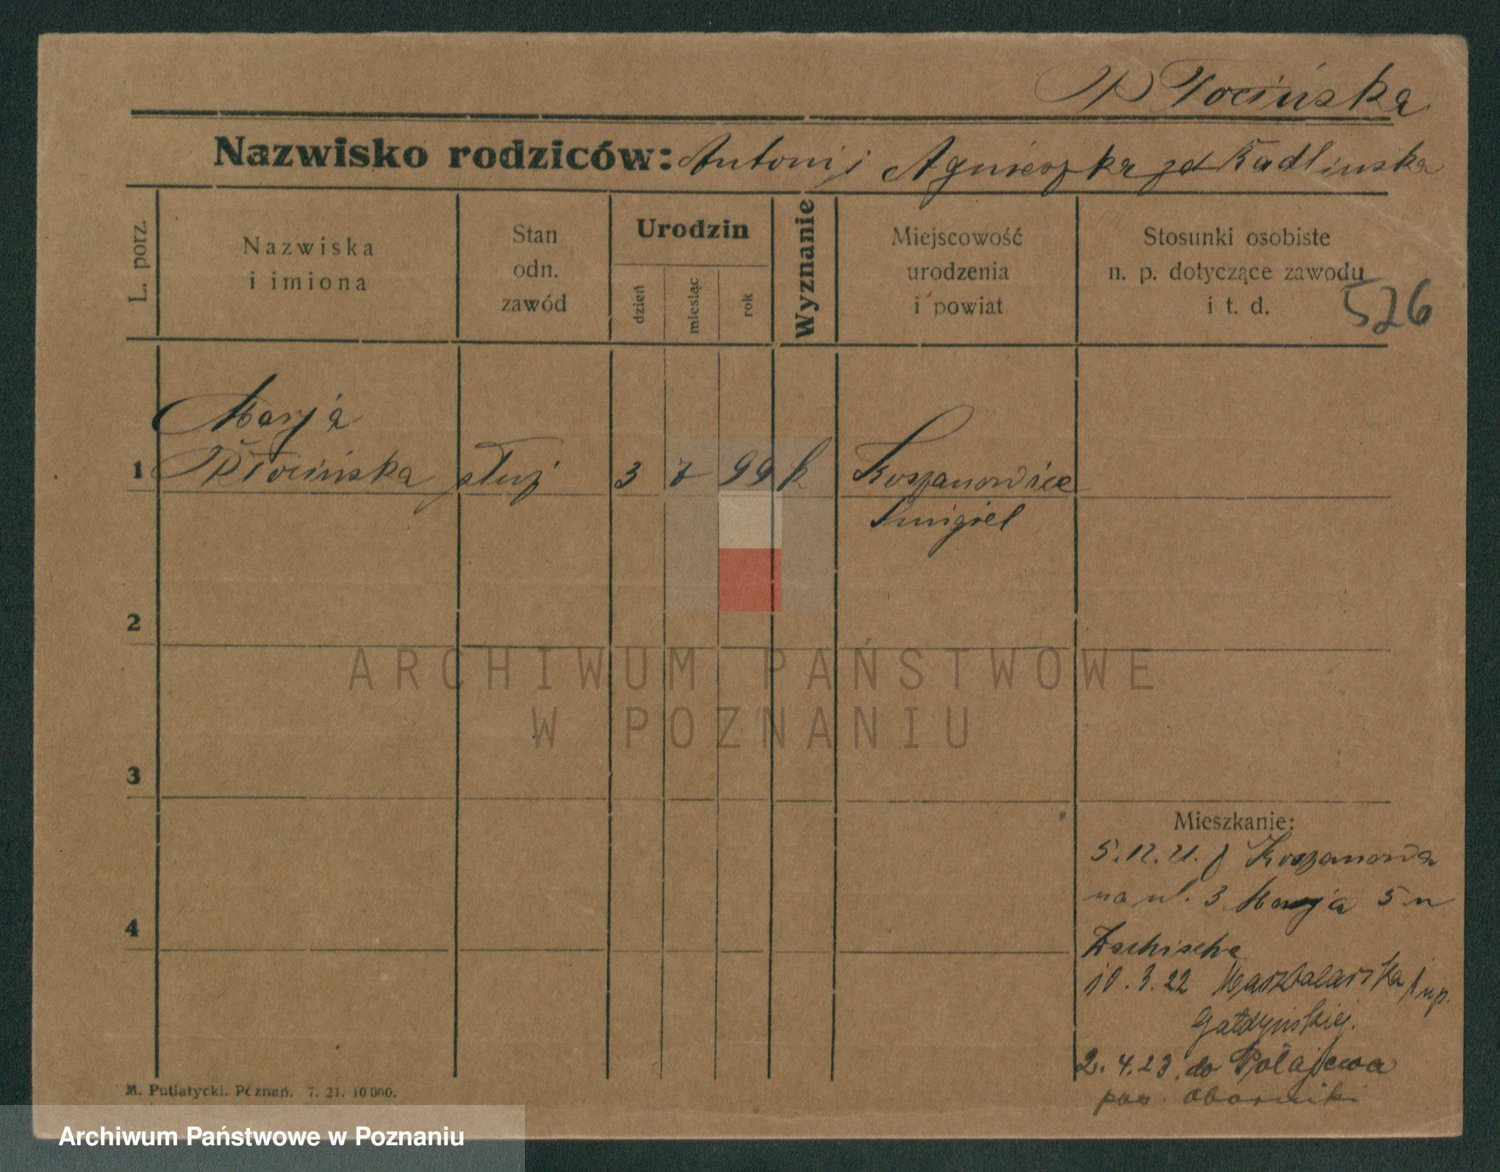 Płocińska
Nazwisko rodziców: Antoni i Agnieszka zd Kadlinska
L. porz.
Nazwiska
i imiona
Stan
odn.
zawód
Urodzin
dzień
miesiąc
rok
Wyznanie
Miejscowość
urodzenia
i powiat
Stosunki osobiste
n. p. dotyczące zawodu
i t. d.
526
Marja
1 Płocińska służ 3 7 99 k Koszanowice
Śmigiel
2
ARCHIWUM PAŃSTWOWE
W POZNANIU
3
Mieszkanie:
5.12.21. z Koszanowa
na ul. 3 Maja 5 u
4
10.3.22 Masztalarska
Gałdyńskiej.
2.4.23. do Połajewa
pow. Oborniki
M. Putiatycki. Poznań. 7. 21. 10000.
Archiwum Państwowe w Poznaniu